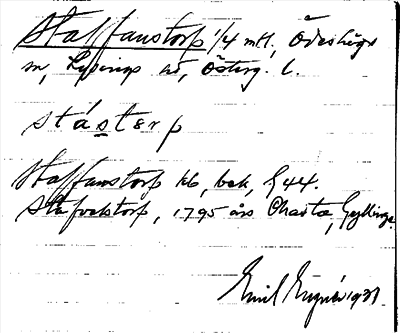 Staffanstorp 1/4 mtl, Ödeshögs
sn, Lysings hd, Österg. l.
stástɛrp
Staffanstorp kb, bok, § 44.
Stafvatorp, 1795 års Charta, Gyllinge.
Emil 1931